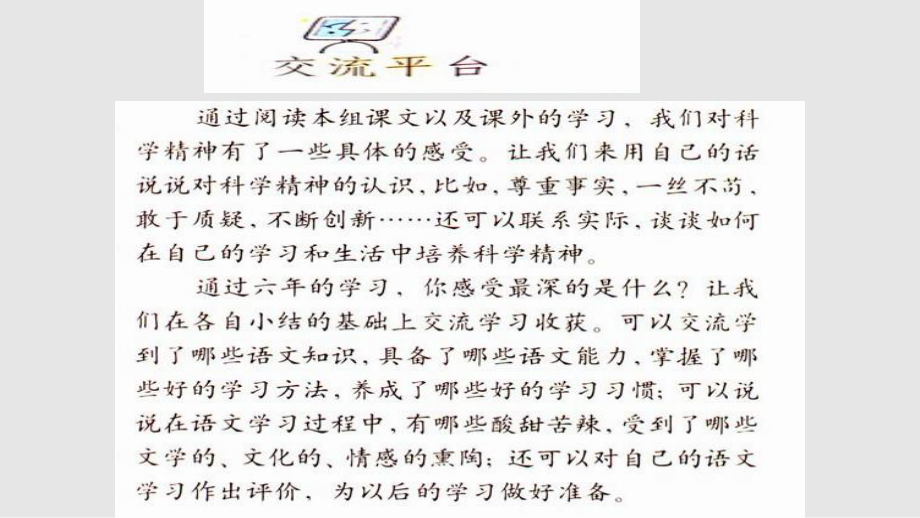 交流平台
通过阅读本组课文以及课外的学习，我们对科
学精神有了一些具体的感受。让我们来用自己的话
说说对科学精神的认识，比如，尊重事实，一丝不苟，
敢于质疑，不断创新……还可以联系实际，谈谈如何
在自己的学习和生活中培养科学精神。
通过六年的学习，你感受最深的是什么？让我
们在各自小结的基础上交流学习收获。可以交流学
到了哪些语文知识，具备了哪些语文能力，掌握了哪
些好的学习方法，养成了哪些好的学习习惯；可以说
说在语文学习过程中，有哪些酸甜苦辣，受到了哪些
文学的、文化的、情感的熏陶；还可以对自己的语文
学习作出评价，为以后的学习做好准备。